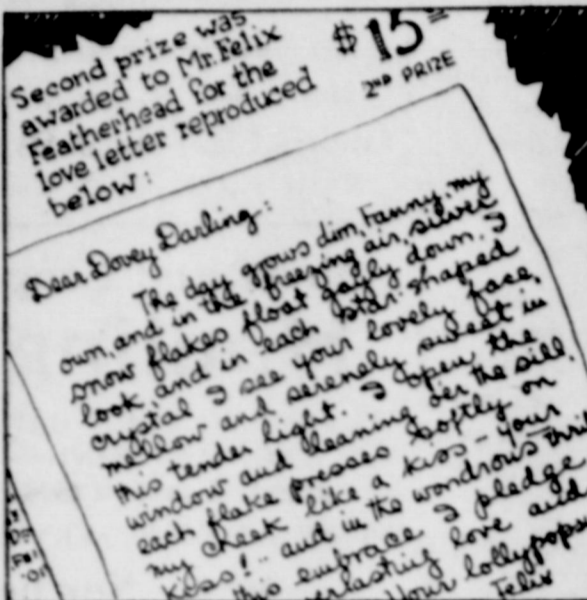 Second prize was
awarded to Mr. Felix
Featherhead for the
love letter reproduced
below:
$15
2ND PRIZE
Dear Dovey Darling:
The day grows dim, Fanny, my
own, and in the freezing air, silver
snow flakes float gayly down. I
look, and in each star shaped
crystal I see your lovely face,
mellow and serenely sweet in
this tender light. I open the
window and leaning o'er the sill,
each flake presses softly on
my cheek like a kiss – your
kiss! – and in the wondrous
this embrace I pledge
everlasting love and
your lollypops
Felix